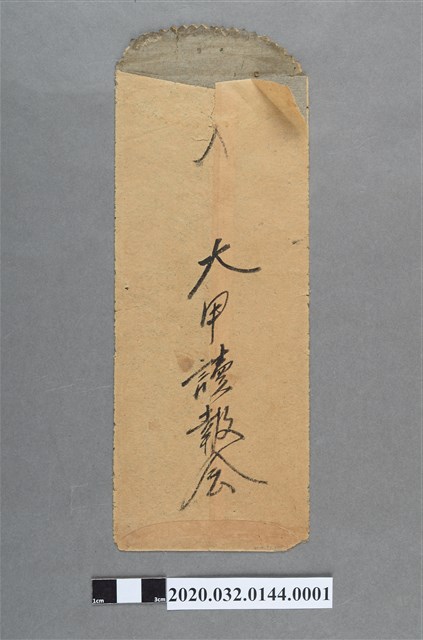 入
大甲讀報会
1cm 3cm
2020.032.0144.0001